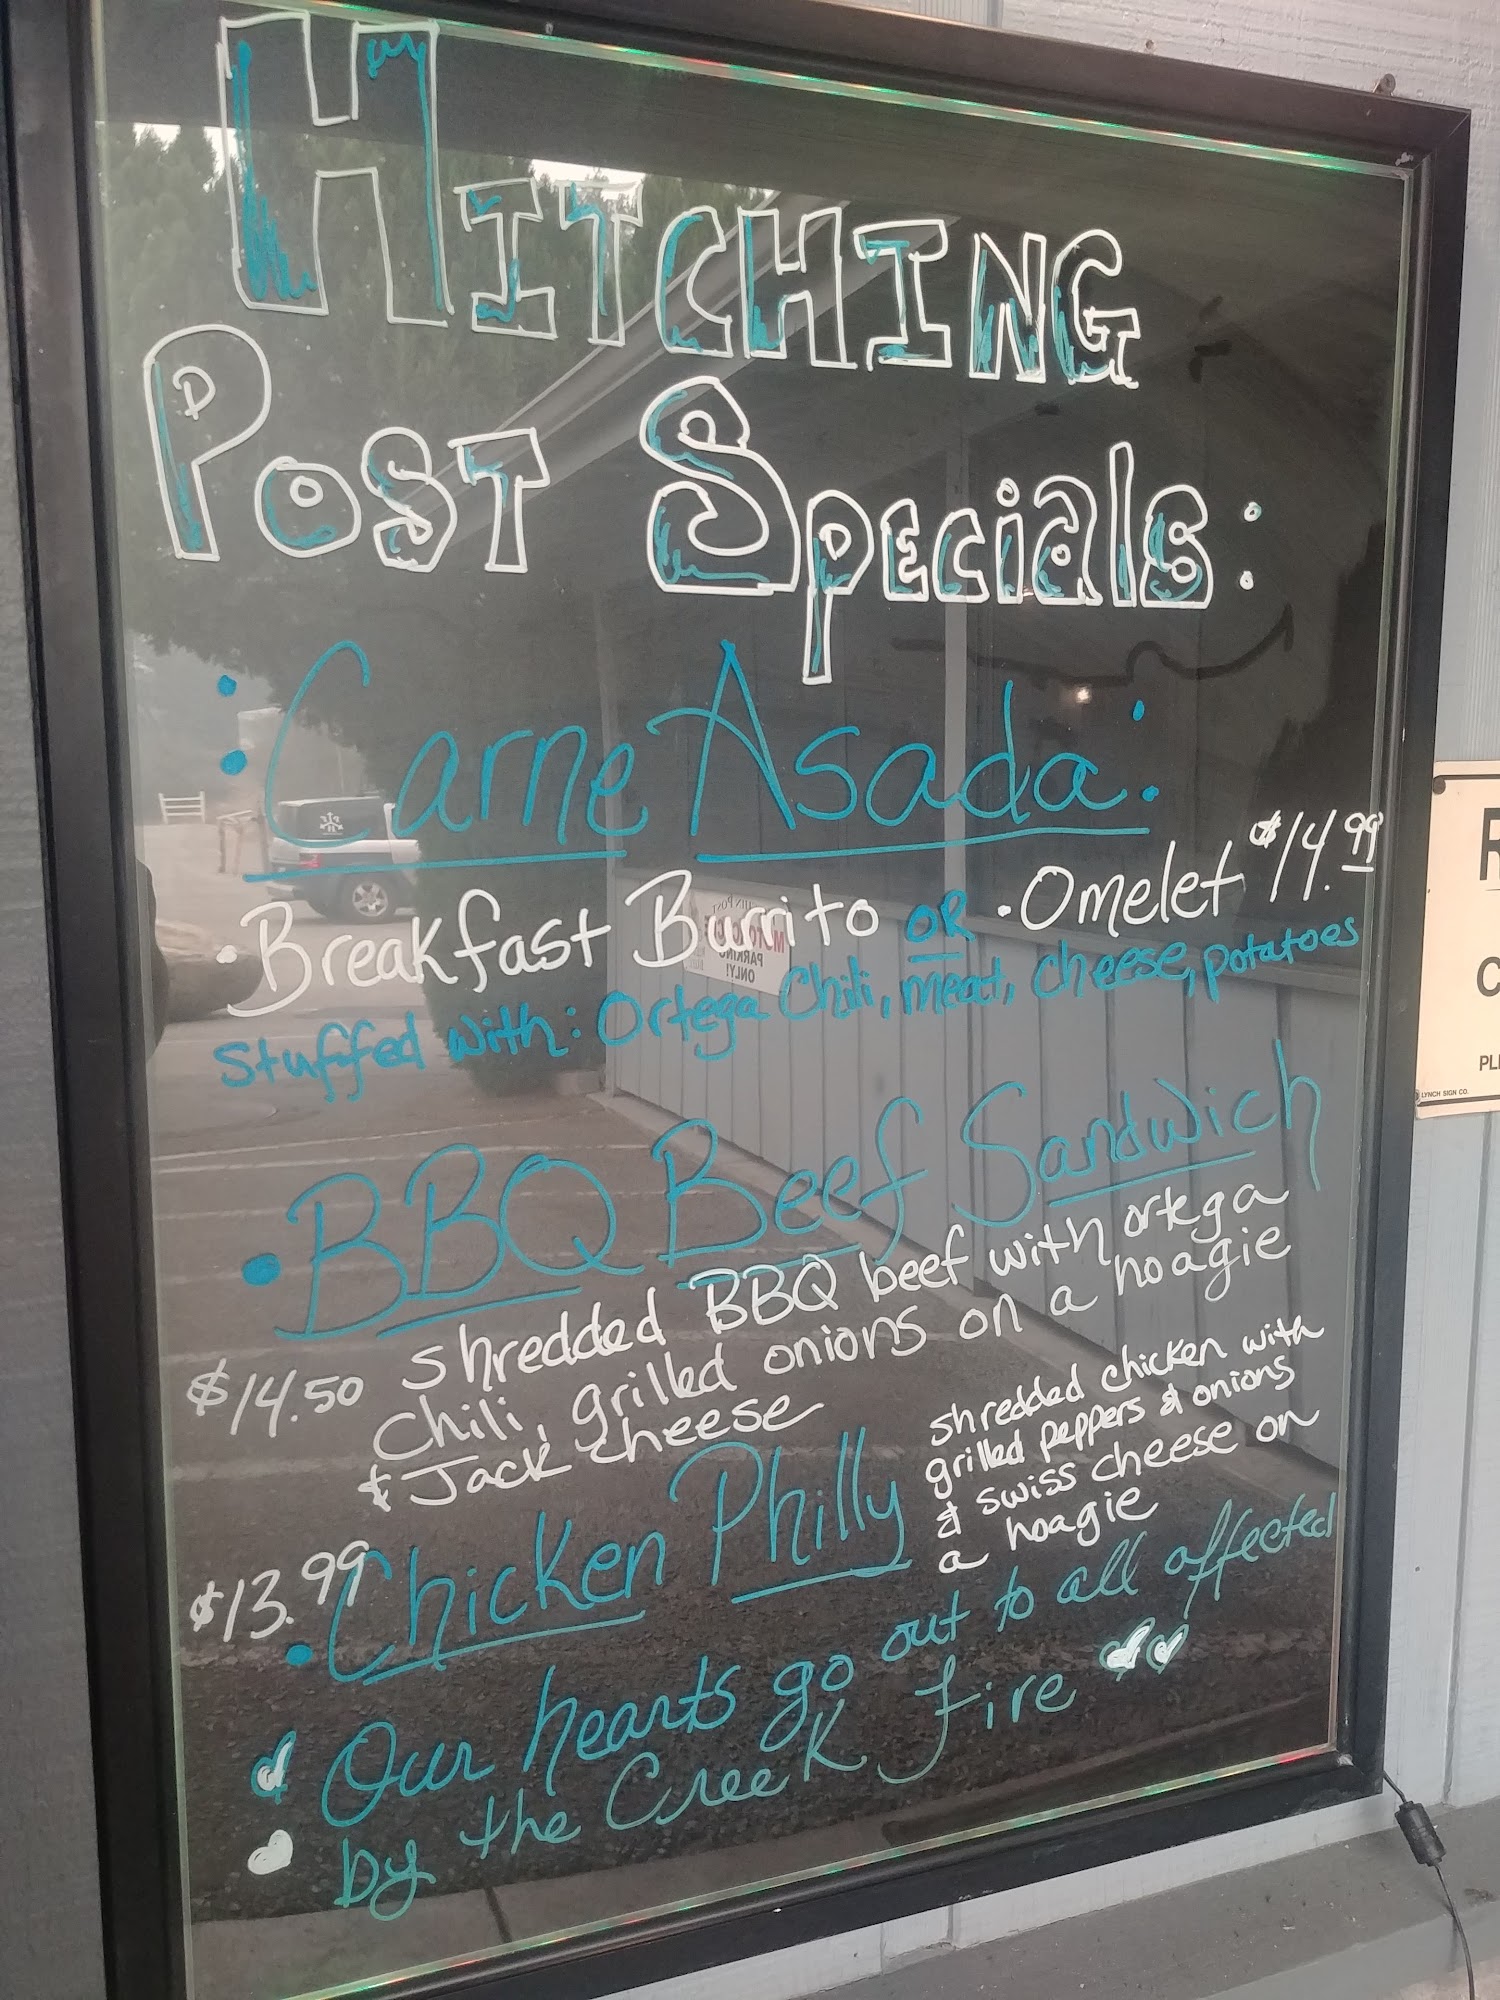 HITCHING
POST SPECIALS:
: Carne Asada:
• Breakfast Burrito OR • Omelet $14.99
Stuffed with: Ortega Chili, meat, cheese, potatoes
• BBQ Beef Sandwich
$14.50 shredded BBQ beef with ortega
chili, grilled onions on a hoagie
& Jack cheese
$13.99
• Chicken Philly
shredded chicken with
grilled peppers & onions
& swiss cheese on
a hoagie
Our hearts go out to all affected
by the Creek Fire
PARKING
ONLY!
R
C
PL
LYNCH SIGN CO.